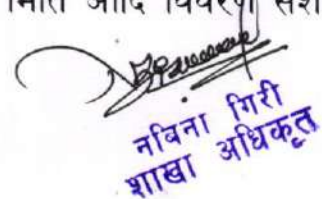 मिति आदि विवरण
नबिना गिरी
शाखा अधिकृत